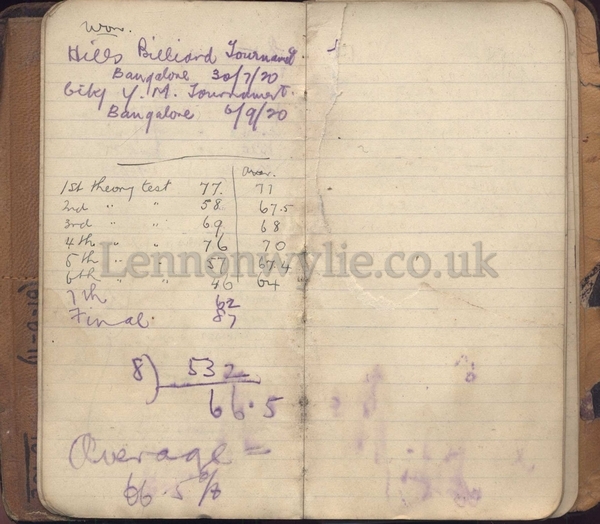 Won.
Hills Billiard Tournament.
Bangalore 30/7/20
City Y.M. Tournament.
Bangalore 6/9/20
Aver.
1st theory test 77. 77
2nd " " 58 67.5
3rd " " 69 68
4th " " 76 70
5th " " 57 67.4
6th " " 46 64
7th 62
Final. 87
8) 532
66.5
Average =
66.5 %
Lennonwylie.co.uk